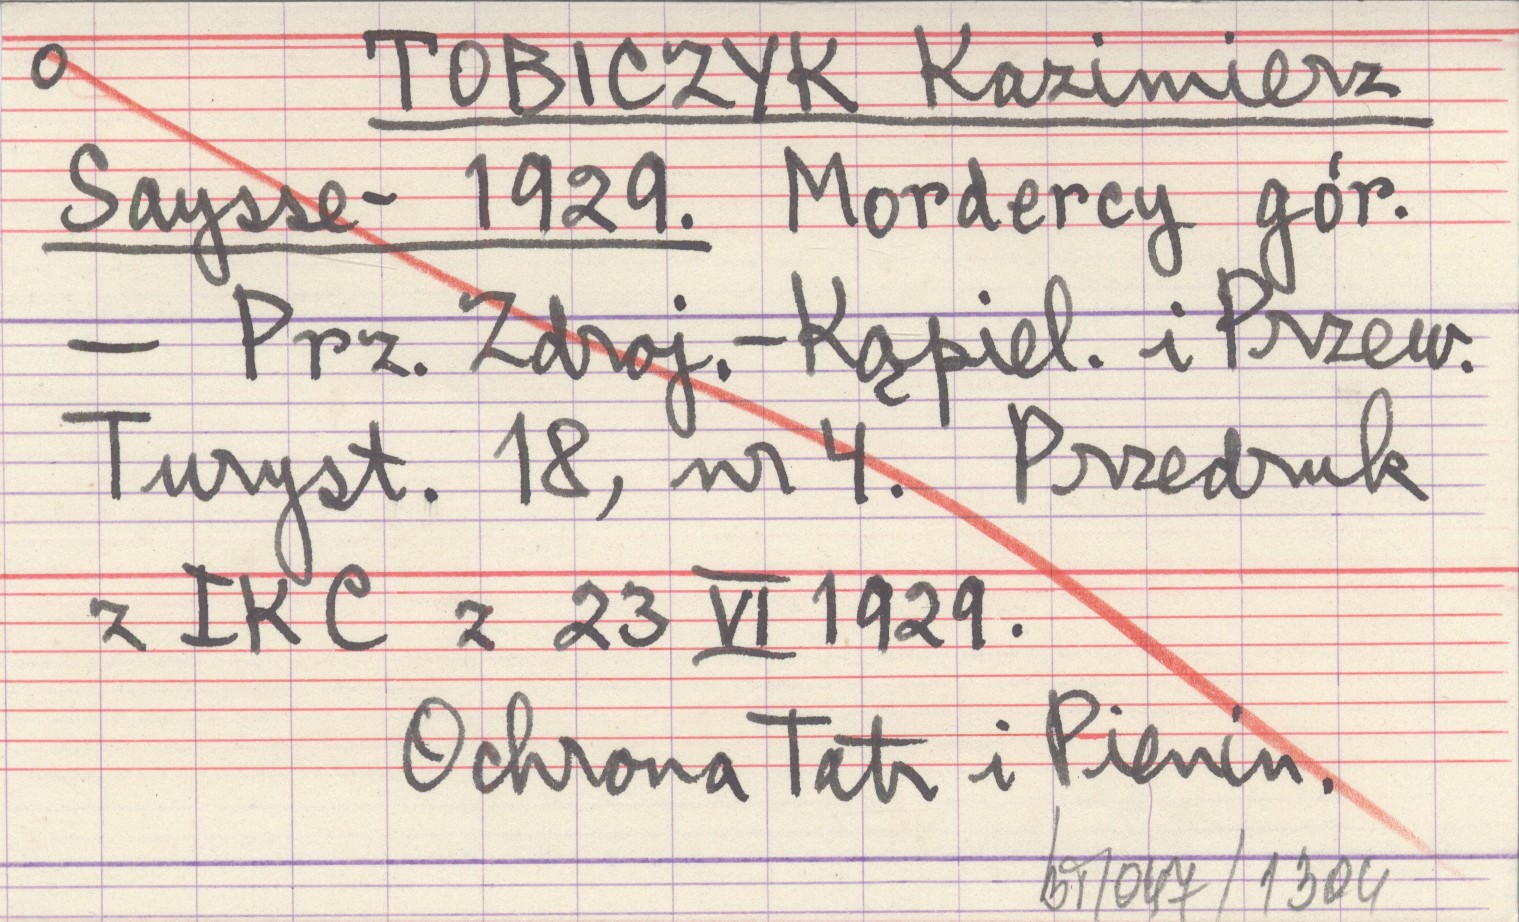 O TOBICZYK Kazimierz
Saysse- 1929. Mordercy gór.
— Prz. Zdroj.-Kąpiel. i Przew.
Turyst. 18, nr 4. Przedruk
z IKC z 23 VI 1929.
Ochrona Tatr i Pienin.
bT/047/1304